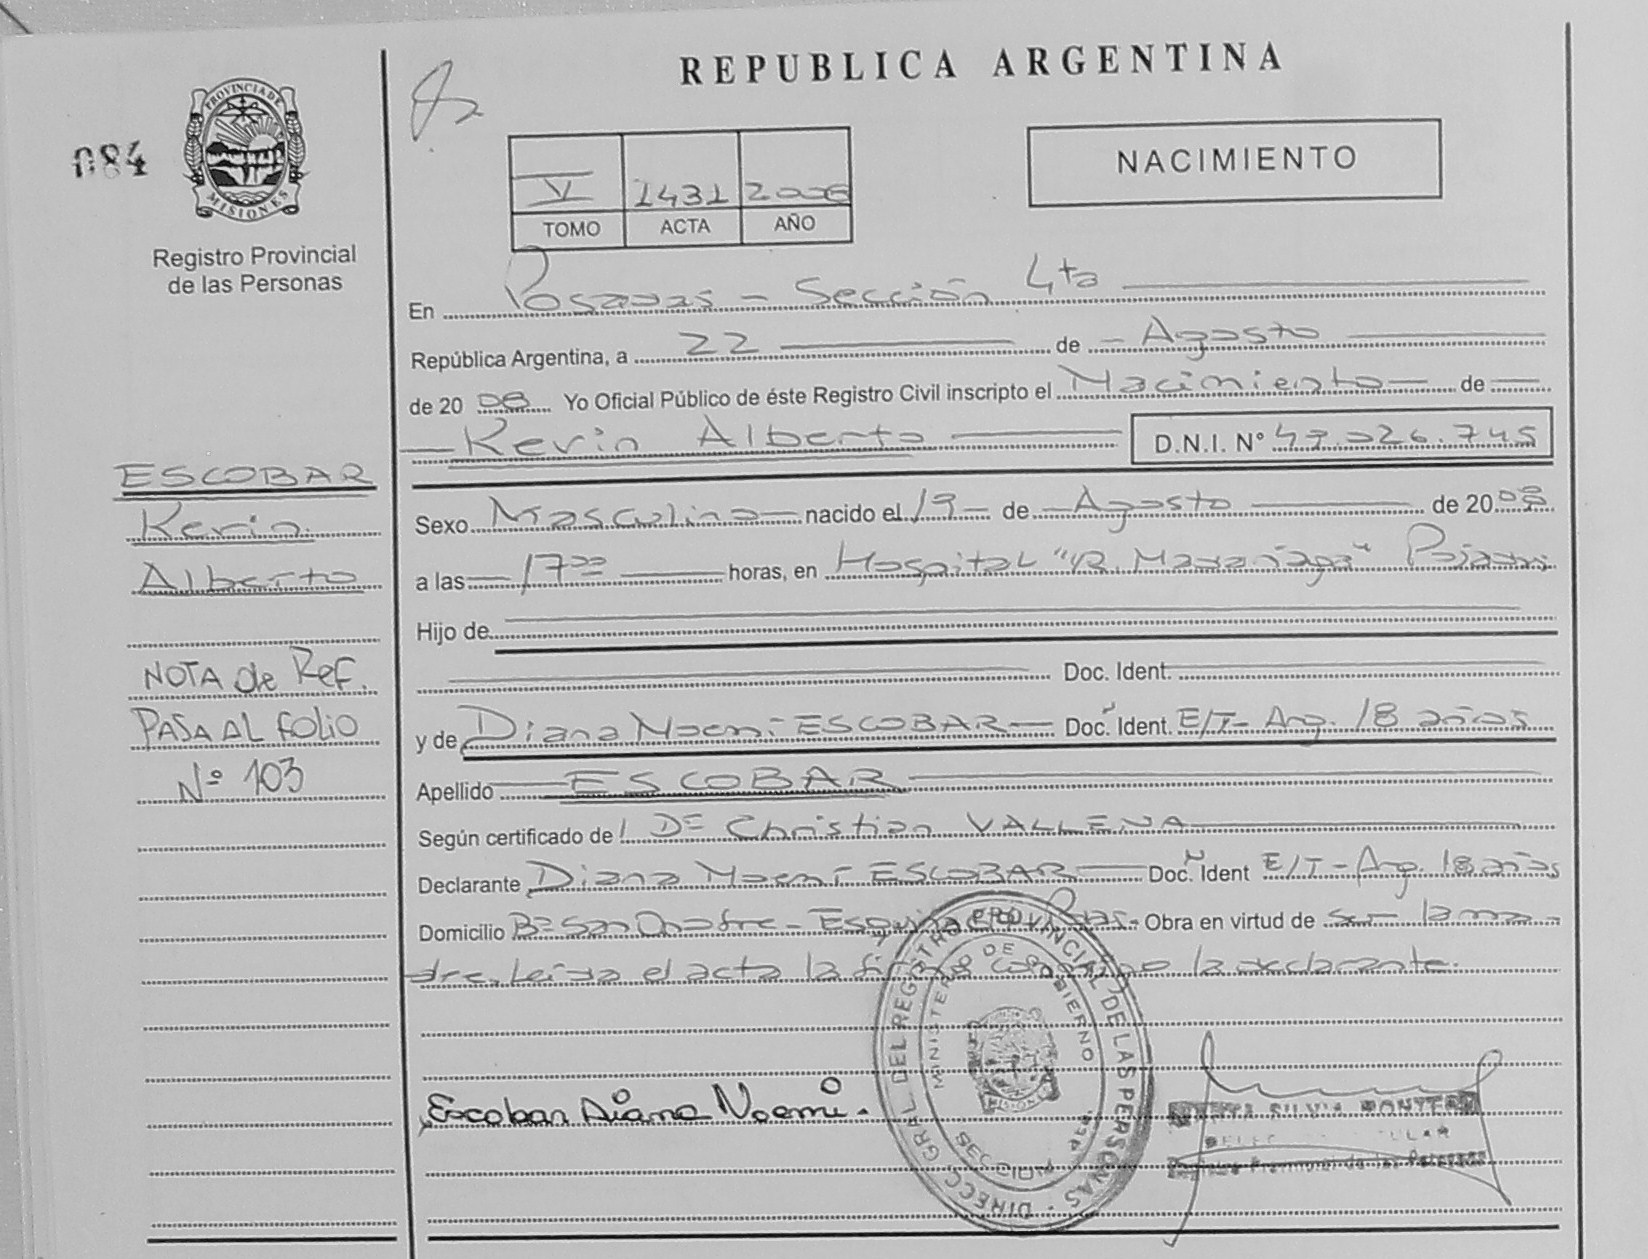 REPUBLICA ARGENTINA
084
PROVINCIA DE MISIONES
Registro Provincial
de las Personas
V 1431 2006
TOMO ACTA AÑO
NACIMIENTO
En Posadas - Sección 4ta
República Argentina, a 22 de Agosto
de 20 Yo Oficial Público de éste Registro Civil inscripto el Nacimiento de
Kevin Alberto D.N.I. Nº 47.026.745
ESCOBAR
Kevin
Alberto
NOTA de Ref.
PASA AL folio
Nº 103
Sexo Masculino nacido el 19 de Agosto de 20
a las 17 00 horas, en Hospital "R. Madariaga" Posadas
Hijo de
Doc. Ident.
y de Diana Noemi ESCOBAR Doc. Ident. E/T- Arg. 18 años
Apellido ESCOBAR
Según certificado de Dr Christian VALLENA
Declarante Diana Noemi ESCOBAR Doc. Ident E/T - Arg. 18 años
Domicilio Bº San Onofre - Pdas.- Obra en virtud de ser la ma-
dre. Leída el acta la firma conmigo la declarante.
DIRECC. GRAL. DEL REGISTRO PROVINCIAL DE LAS PERSONAS
MINISTERIO DE GOBIERNO
MISIONES
Escobar Diana Noemi.
SILVIA
Registro Provincial de las Personas